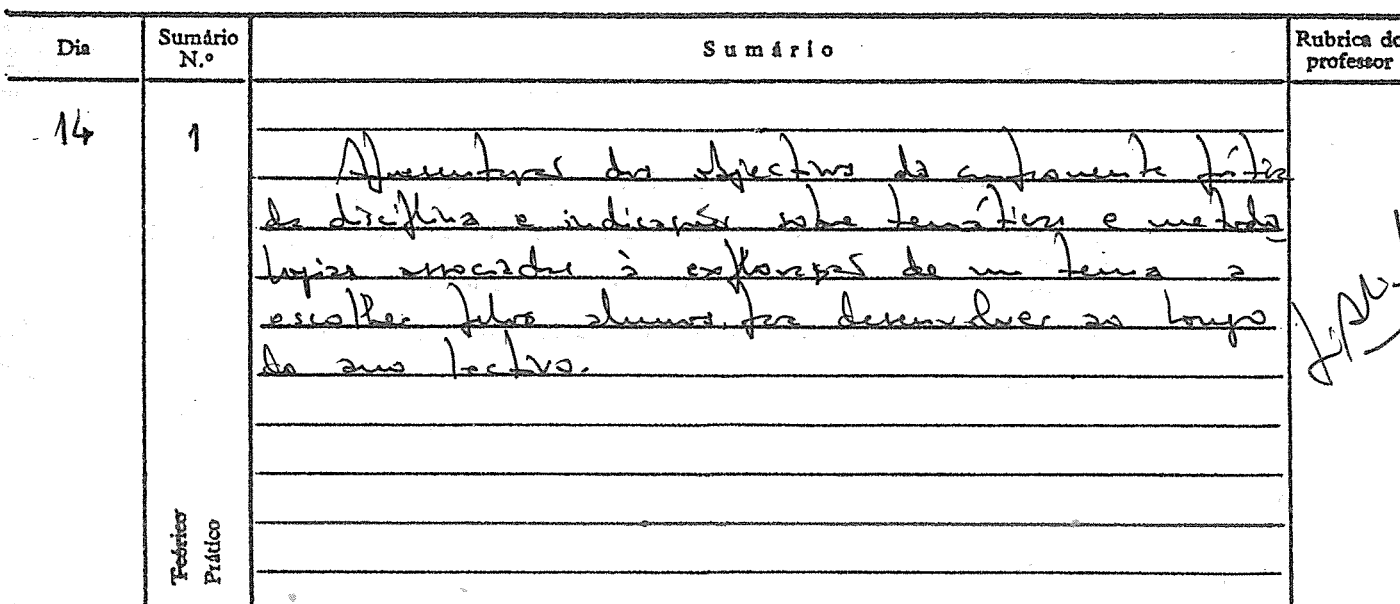 Dia
Sumário N.º
Sumário
Rubrica do professor
14
1
Apresentação dos objectivos da componente prática
da disciplina e indicações sobre temáticas e metodo
logias associadas à exploração de um tema a
escolher pelos alunos, para desenvolver ao longo
do ano lectivo.
Teórico
Prático